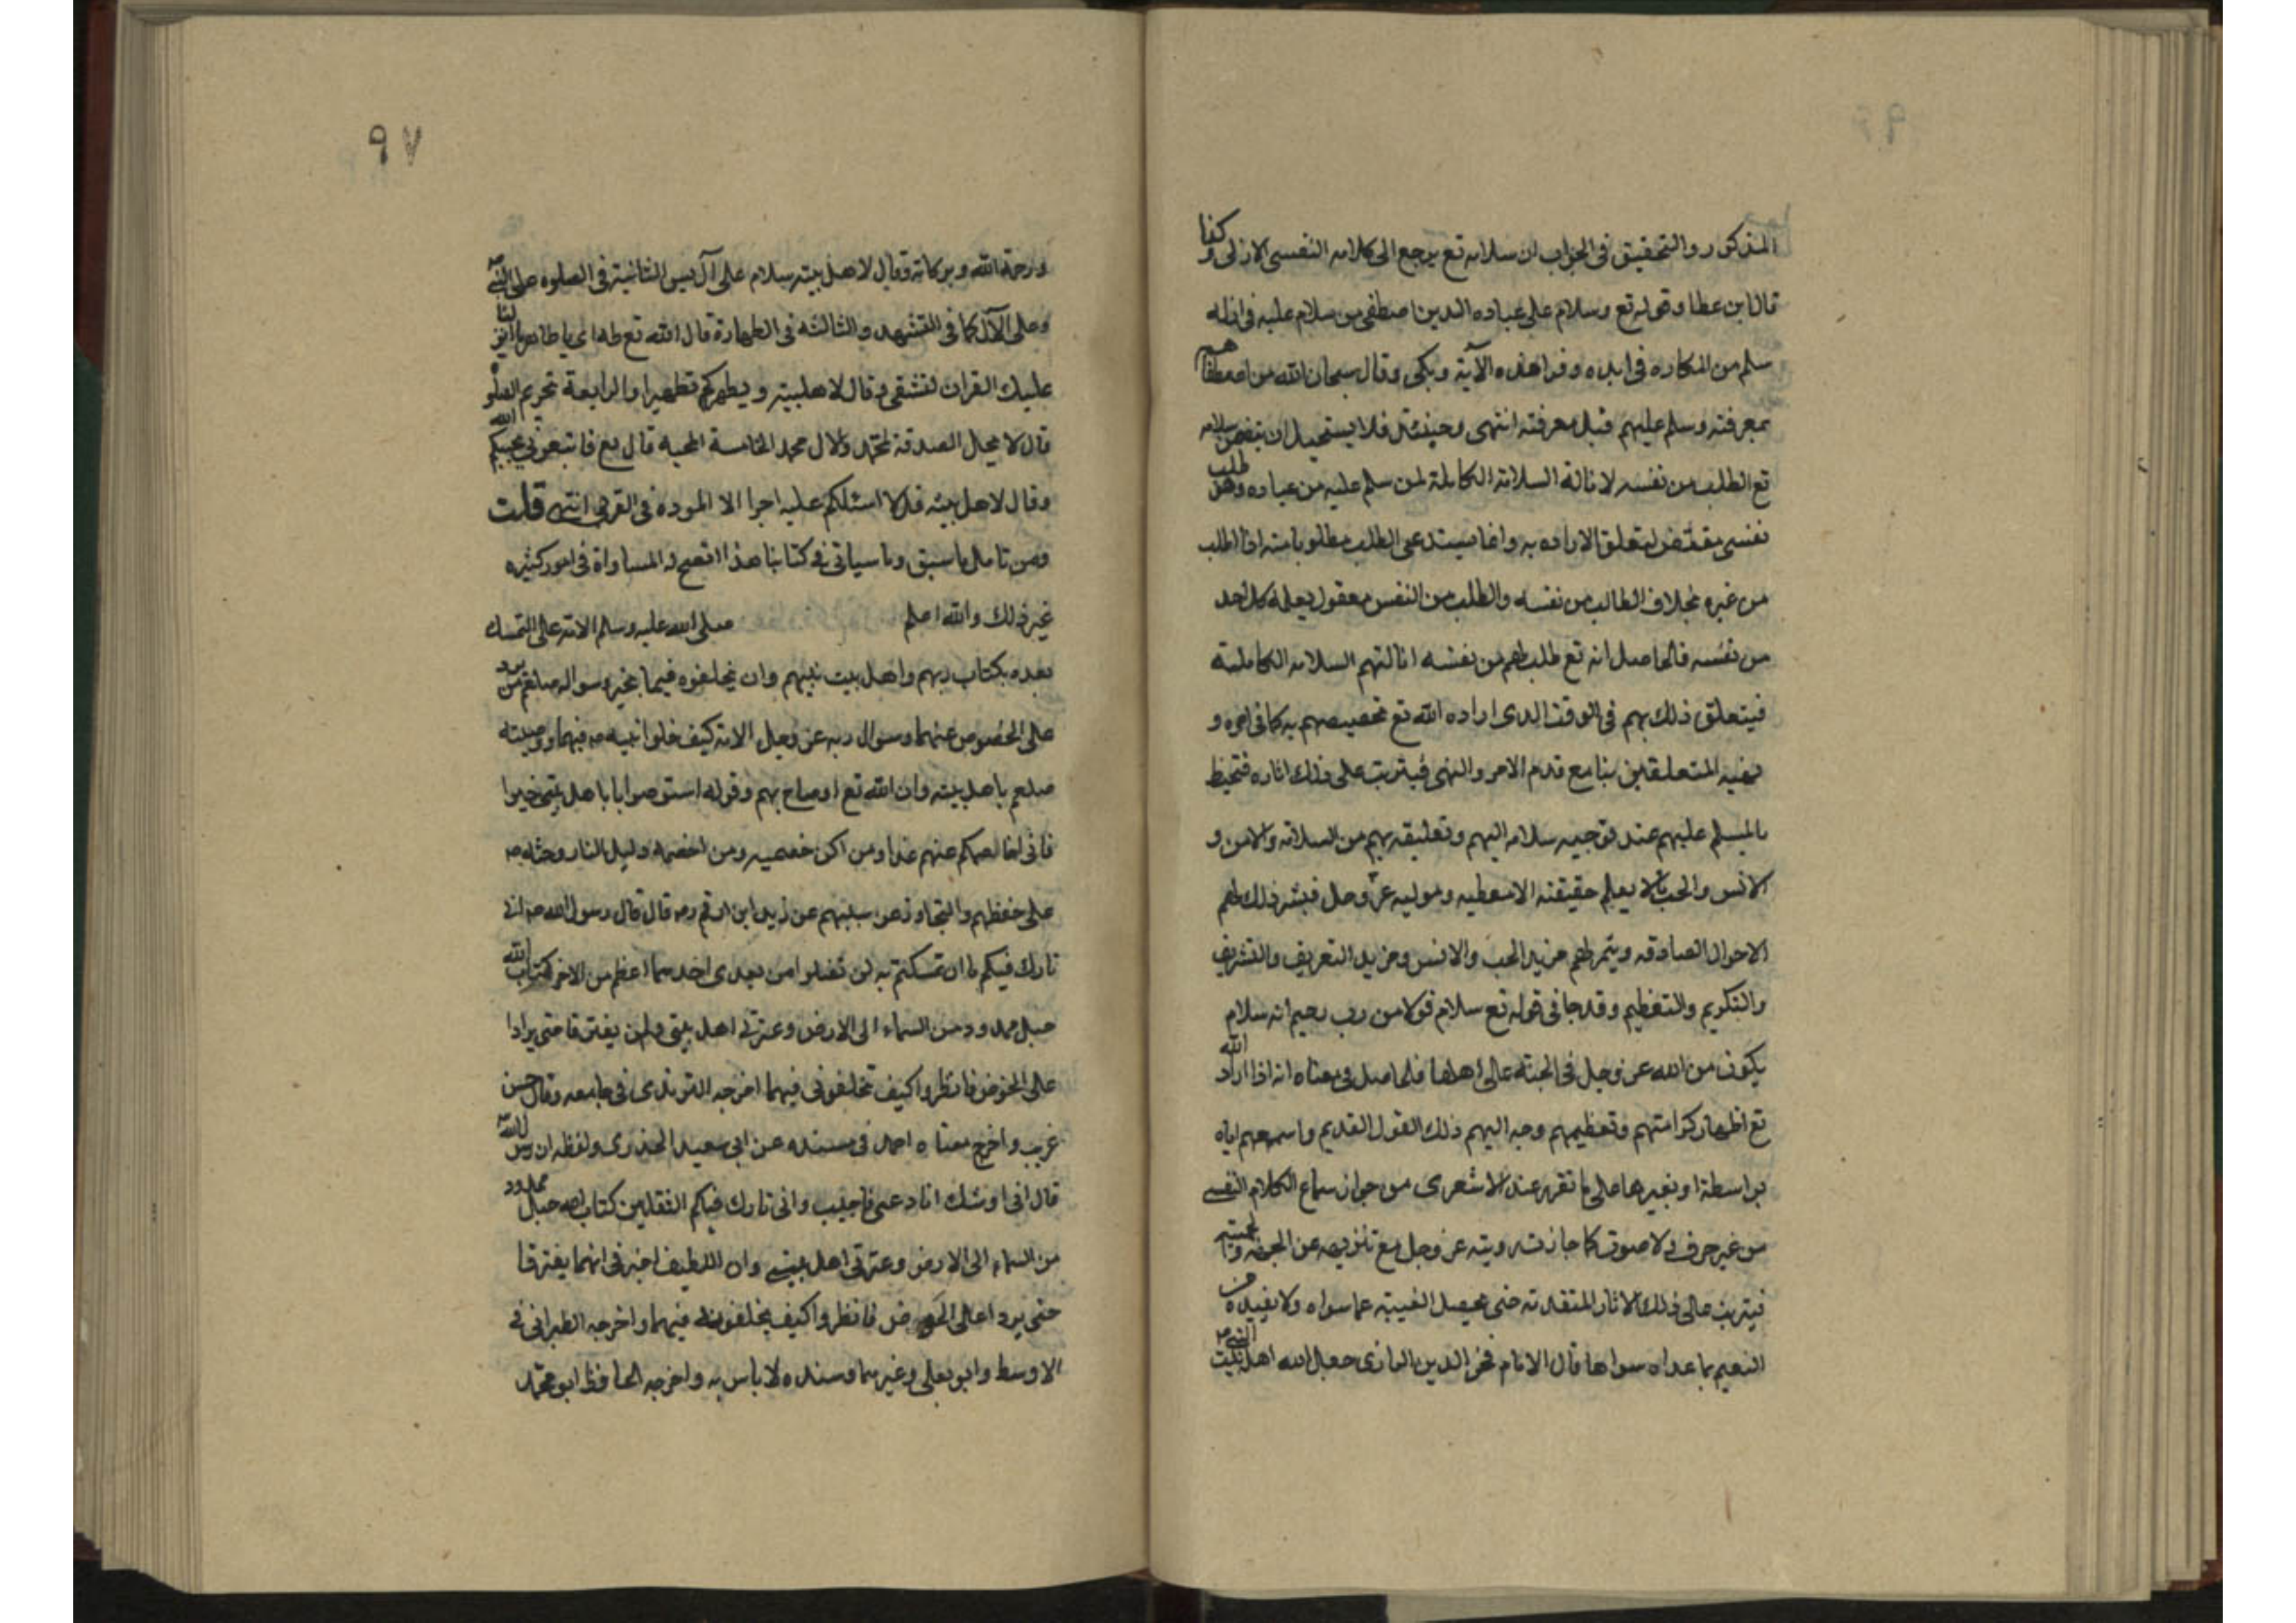 المذكور والتحقيق فى الجواب ان سلامه تع يرجع الى كلامه النفسى الازلى وكذا
قال ابن عطا وقوله تع وسلام على عباده الدين اصطفى من سلام عليه فى ازله
سلم من المكاره فى ابده وقرا هذه الآية وبكى وقال سبحان الله من اصطفاهم
بمعرفته وسلم عليهم قبل معرفته انتهى وحينئذ فلا يستحيل ان يتضمن سلامه
تع الطلب من نفسه لانالة السلامة الكاملة لمن سلم عليه من عباده وهى طلب
نفسى مقتض لتعلق الاراده به وانما يستدعى الطلب مطلوبا منه اذا طلب
من غيره بخلاف الطالب من نفسه والطلب من النفس معقول يعلمه كل احد
من نفسه فالحاصل انه تع طلب لهم من نفسه انالتهم السلامه الكاملة
فيتعلق ذلك بهم فى الوقت الدى اراده الله تع تخصيصهم به كما فى امره و
نهيه المتعلقين بنا مع قدم الامر والنهى فيترتب على ذلك اثاره فتحيط
بالمسلم عليهم عند توجيه سلامه اليهم وتعليقه بهم من السلامة والامن و
الانس والحب ما لا يعلم حقيقته الا معطيه وموليه عز وجل فبشر ذلك لهم
الاحوال الصادقه ويثمر لهم مزيد الحب والانس ومزيد التعريف والتشريف
والتكريم والتعظيم وقد جا فى قوله تع سلام قولا من رب رحيم انه سلام
يكون من الله عز وجل فى الجنة على اهلها فالحاصل فى معناه انه اذا اراد الله
تع اظهار كرامتهم وتعظيمهم وجه اليهم ذلك القول القديم واسمعهم اياه
بواسطة او بغيرها على ما تقرر عند الاشعرى من جواز سماع الكلام النفسى
من غير حرف ولا صوت كما جازت رويته عز وجل مع تنزيهه عن الجهة
فيترتب على ذلك الاثار المتقدمة حتى يحصل الغيبة عما سواه ولا يفيده
النعيم بما عداه سواها قال الامام فخر الدين الرازى جعل الله اهل بيت النبى ص
٩٧
ورحمة الله وبركاته وقال لاهل بيته سلام على آل يس الثانية فى الصلوه على النبى ص
وعلى الآل كما فى التشهد والثالثه فى الطهارة قال الله تع طه اى يا طاهر ما انزلنا
عليك القران لتشقى وقال لاهلبيته ويطهركم تطهيرا والرابعة تحريم
قال لا يحل الصدقة لمحمد ولا ل محمد الخامسة المحبه قال تع فاتبعونى يحببكم الله
وقال لاهل بيته قل لا اسئلكم عليه اجرا الا الموده فى القربى انتهى قلت
ومن تامل ما سبق وما سياتى فى كتابنا هذا اتضح له المساواة فى امور كثيره
غير ذلك والله اعلم صلى الله عليه وسلم الامة على التمسك
بعده بكتاب ربهم واهل بيت نبيهم وان يخلفوه فيما بخير وسواله صلعم من يرد
على الحوض عنهما وسوال ربه عز وجل الامة كيف خلوا نبيه ص فيهما ووصيته
صلعم باهل بيته وان الله تع اوصاه بهم وقوله استوصوا باهل بيتى خيرا
فانى اخاصمكم عنهم غدا ومن اكن خصمه ومن اخصمه دخل النار وحثه ص
على حفظهم والتجاوز عن مسيئهم عن زيد ابن ارقم رض قال قال رسول الله ص انى
تارك فيكم ما ان تمسكتم به لن تضلوا من بعدى احدهما اعظم من الاخر كتاب الله
حبل ممدود من السماء الى الارض وعترتى اهل بيتى ولن يفترقا حتى يردا
على الحوض فانظروا كيف تخلفونى فيهما اخرجه الترمذى فى جامعه وقال حسن
غريب واخرج معناه احمد فى مسنده عن ابى سعيد الخدرى ولفظه ان رسول الله ص
قال انى اوشك ان ادعى فاجيب وانى تارك فيكم الثقلين كتاب الله حبل ممدود
من السماء الى الارض وعترتى اهل بيتى وان اللطيف اخبرنى انهما يفترقا
حتى يردا على الحوض فانظروا كيف يخلفونى فيهما واخرجه الطبرانى فى
الاوسط وابو يعلى وغيرهما وسنده لا باس به واخرجه الحافظ ابو محمد